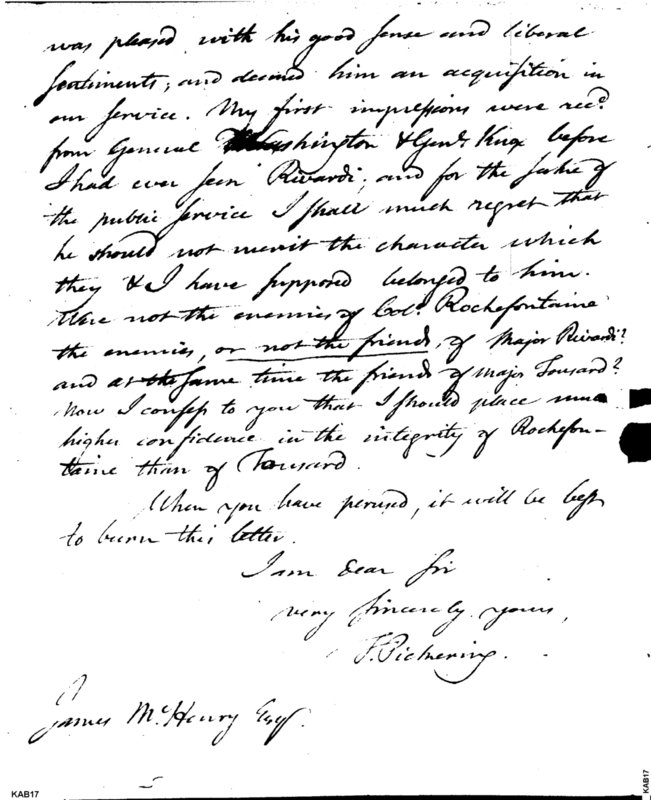 was pleased with his good sense and liberal
sentiments, and deemed him an acquisition in
our service. My first impressions were rec.d
from General Washington & Genl. Knox before
I had ever seen Rivardi; and for the sake of
the public service I shall much regret that
he should not merit the character which
they & I have supposed belonged to him.
Were not the enemies of Col.o Rochefontaine
the enemies, or not the friends, of Major Rivardi?
and at the same time the friends of Major Tousard?
Now I confess to you that I should place much
higher confidence in the integrity of Rochefon-
taine than of Tousard.
When you have perused, it will be best
to burn this letter.
I am Dear Sir
very sincerely yours,
T. Pickering.
James McHenry Esqr.
KAB17
KAB17